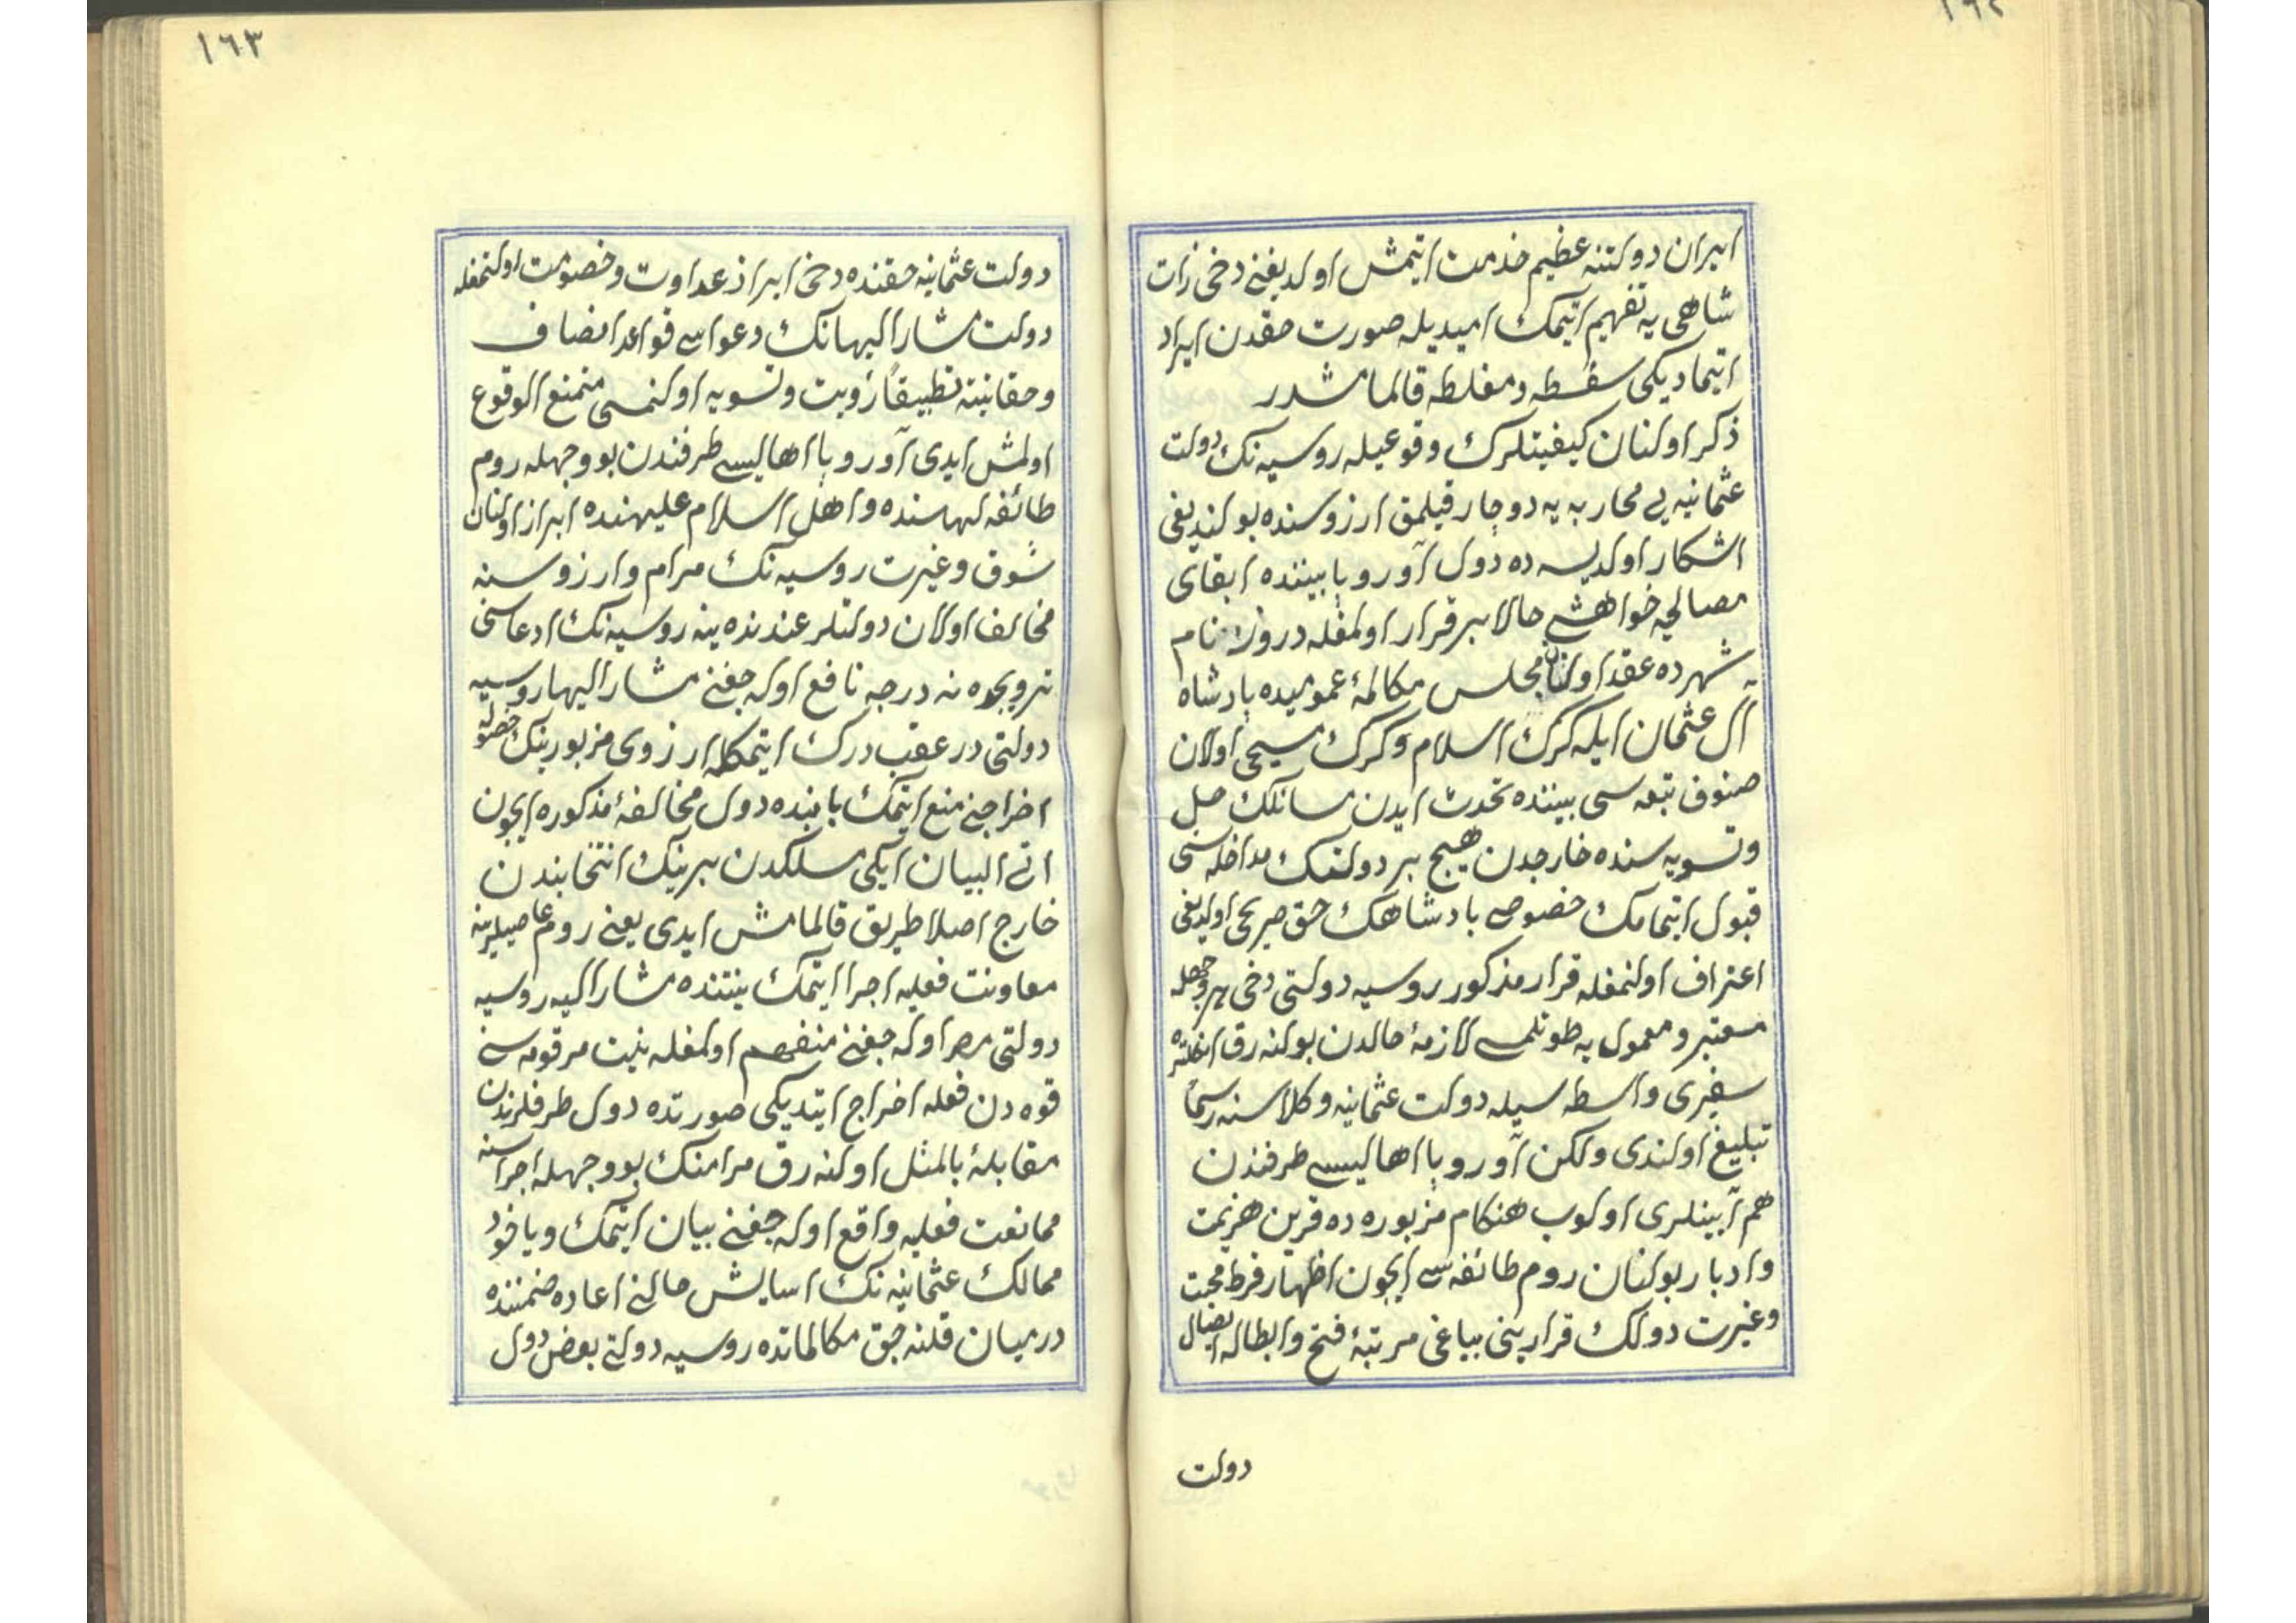 ١٦٢
ايران دولتنه عظيم خدمت ايتمش اولديغنى دخى ذات
شاهى يه تفهيم ايتمك اميديله صورت حقدن ايراد
ايتماديكى سفسطه و مغلطه قالمامشدر
ذكر اولنان كيفيتلرك وقوعيله روسيه نك دولت
عثمانيه يى محاربه يه دوچار قيلمق ارزوسنده بولنديغى
اشكار اولديسه ده دول آوروپا بيننده ابقاى
مصالحه خواهشى حالا برقرار اولمغله درونه نام
شهرده عقد اولنان مجلس مكالمۀ عموميده پادشاه
آل عثمان ايله كرك اسلام و كرك مسيحى اولان
صنوف تبعه سى بيننده تحدث ايدن مسائلك حل
و تسويه سنده خارجدن هيچ بر دولتك مداخله سنى
قبول ايتمامك خصوصى پادشاهك حق صريحى اولديغى
اعتراف اولنمغله قرار مذكور روسيه دولتى دخى بروجهله
معتبر و معمول به طوتلمسى لازمۀ حالدن بولنه رق انكلتره
سفيرى واسطه سيله دولت عثمانيه وكلاسنه رسماً
تبليغ اولندى ولكن آوروپا اهاليسى طرفندن
هم آيينلرى اولوب هنكام مزبوره ده قرين هزيمت
و ادبار بولنان روم طائفه سى ايچون اظهار فرط محبت
و غيرت دولك قرارينى بياغى مرتبۀ فسخ و ابطاله ايصال
دولت
١٦٣
دولت عثمانيه حقنده دخى ابراز عداوت و خصومت اولنمغله
دولت مشار اليهانك دعواسى قواعد انصاف
و حقانيته تطبيقاً رؤيت و تسويه اولنمسى ممتنع الوقوع
اولمش ايدى آوروپا اهاليسى طرفندن بو وجهله روم
طائفه لهاسنده و اهل اسلام عليهنده ابراز اولنان
شوق و غيرت روسيه نك مرام و ارزوسنه
مخالف اولان دولتلر عندنده ينه روسيه نك ادعاسنى
ترويجده نه درجه نافع اوله جغنى مشار اليها روسيه
دولتى در عقب درك ايتمكله ارزوى مزبورينك حصوله
اخراجنى منع ايتمك بابنده دول مخالفۀ مذكوره ايچون
اتى البيان ايكى مسلكدن برينك انتخابندن
خارج اصلا طريق قالمامش ايدى يعنى روم عاصيلرينه
معاونت فعليه اجرا ايتمك نيتنده مشار اليه روسيه
دولتى مصر اوله جغنى منفهم اولمغله نيت مرقومه سنى
قوه دن فعله اخراج ايتديكى صورتده دول طرفلرندن
مقابلۀ بالمثل اولنه رق مرامنك بو وجهله اجراسنه
ممانعت فعليه واقع اوله جغنى بيان ايتمك و ياخود
ممالك عثمانيه نك اسايش حالنى اعاده ضمننده
درميان قلنه جق مكالماتده روسيه دولتى بعض دول